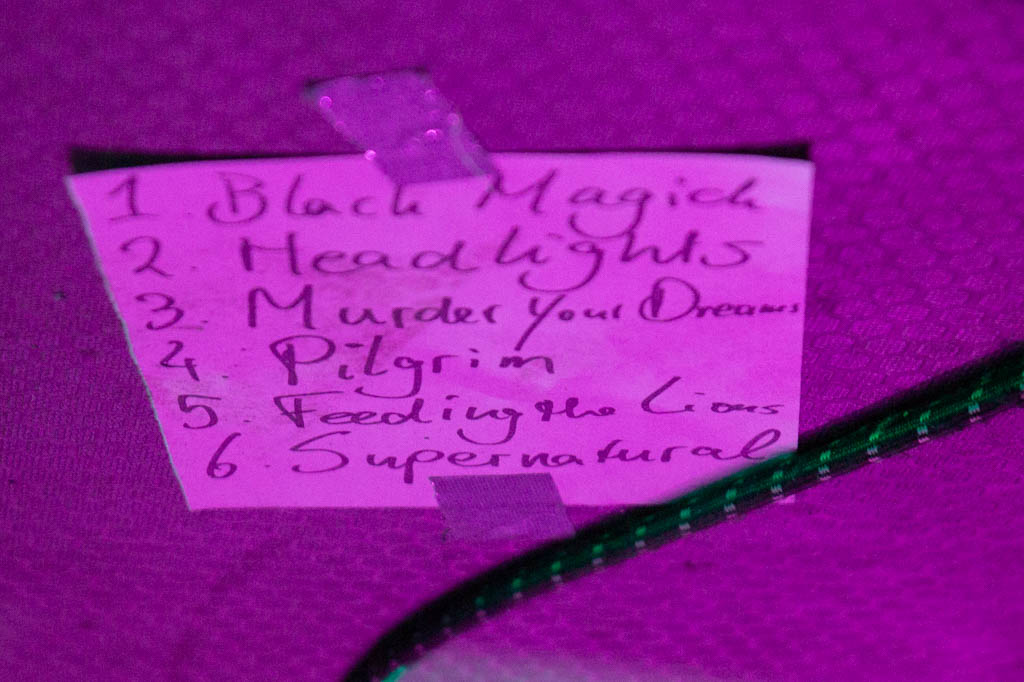 1 Black Magick
2. Headlights
3. Murder Your Dreams
4. Pilgrim
5. Feeding the Lions
6. Supernatural